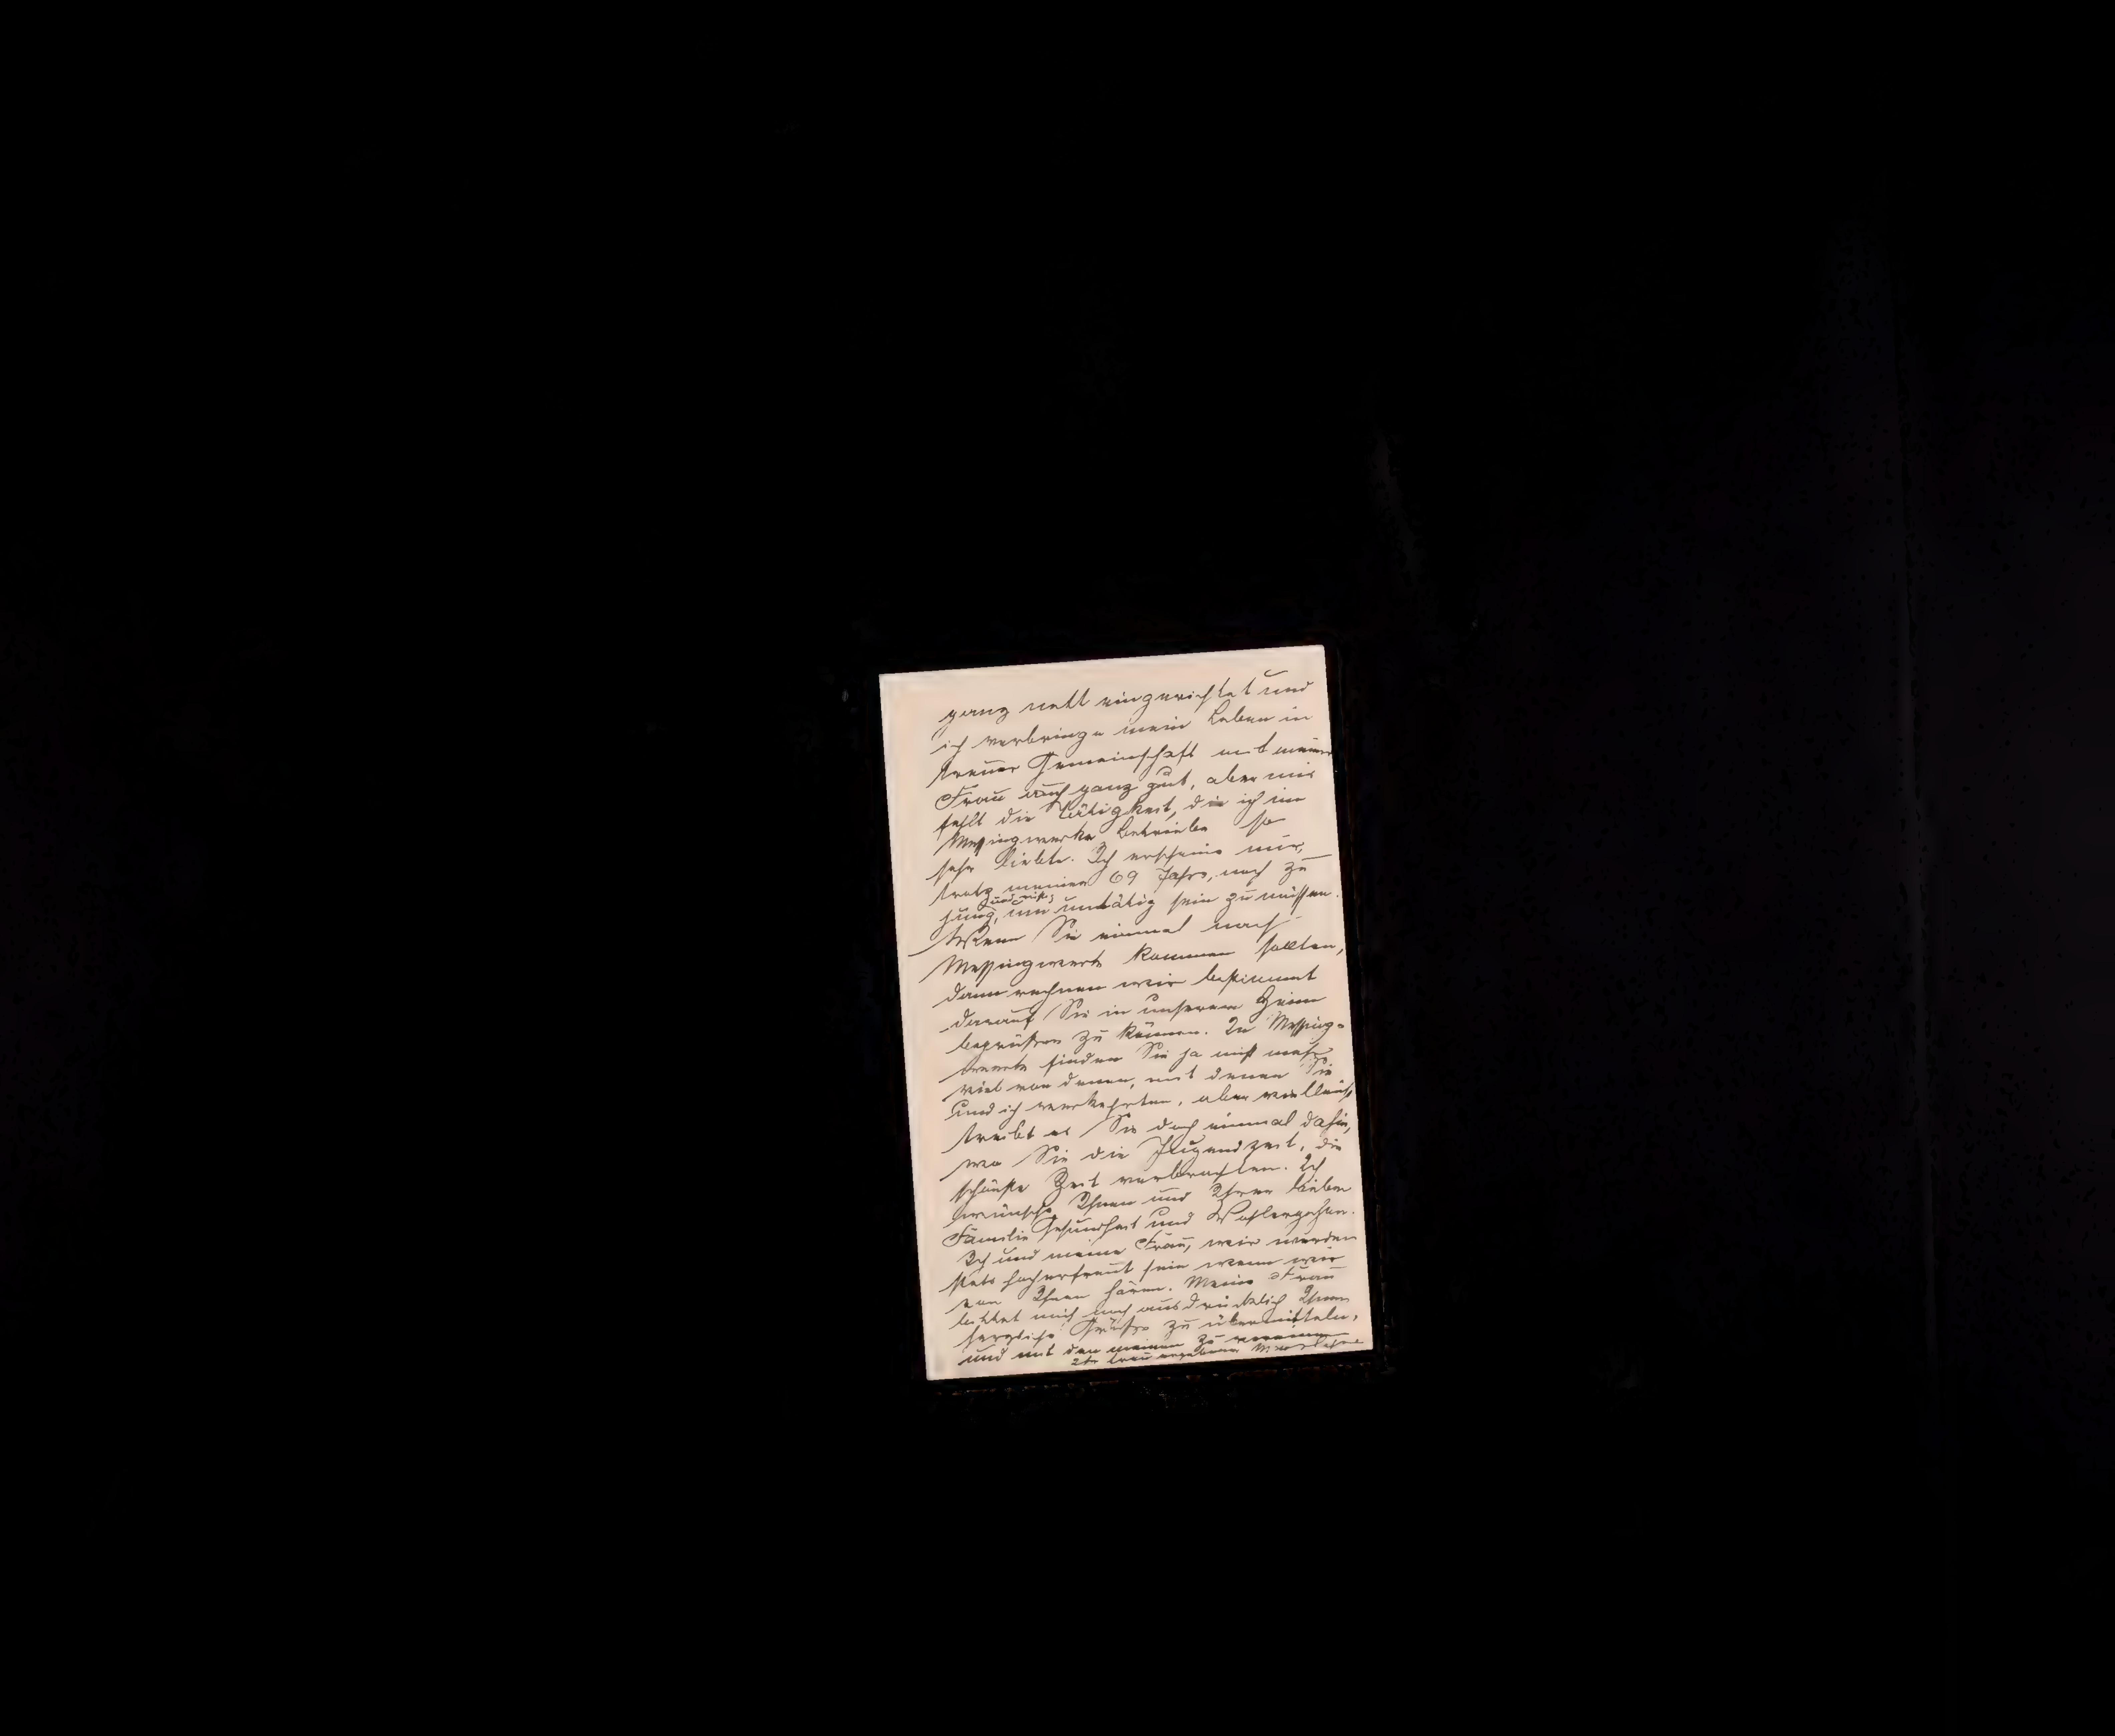 ganz nett eingerichtet und
ich verbringe mein Leben in
treuer Gemeinschaft mit meiner
Frau auch ganz gut, aber mir
fehlt die Tätigkeit, die ich im
Messingwerke Betriebe so
sehr liebte. Ich erscheine mir,
trotz meiner 69 Jahre, noch zu
jung, um untätig sein zu müssen.
Wenn Sie einmal nach
Messingwerk kommen sollten,
dann rechnen wir bestimmt
darauf Sie in unserem Heim
begrüßen zu können. In Messing-
werk finden Sie ja nicht mehr
viel von denen, mit denen Sie
und ich verkehrten, aber vielleicht
treibt es Sie doch einmal dahin,
wo Sie die Jugendzeit, die
schönste Zeit verbrachten. Ich
wünsche Ihnen und Ihrer lieben
Familie Gesundheit und Wohlergehen.
Ich und meine Frau, wir werden
stets hocherfreut sein wenn wir
von Ihnen hören. Meine Frau
bittet mich noch ausdrücklich Ihnen
herzliche Grüße zu übermitteln,
und mit den meinen zu vereinen
Ihr treu ergebener